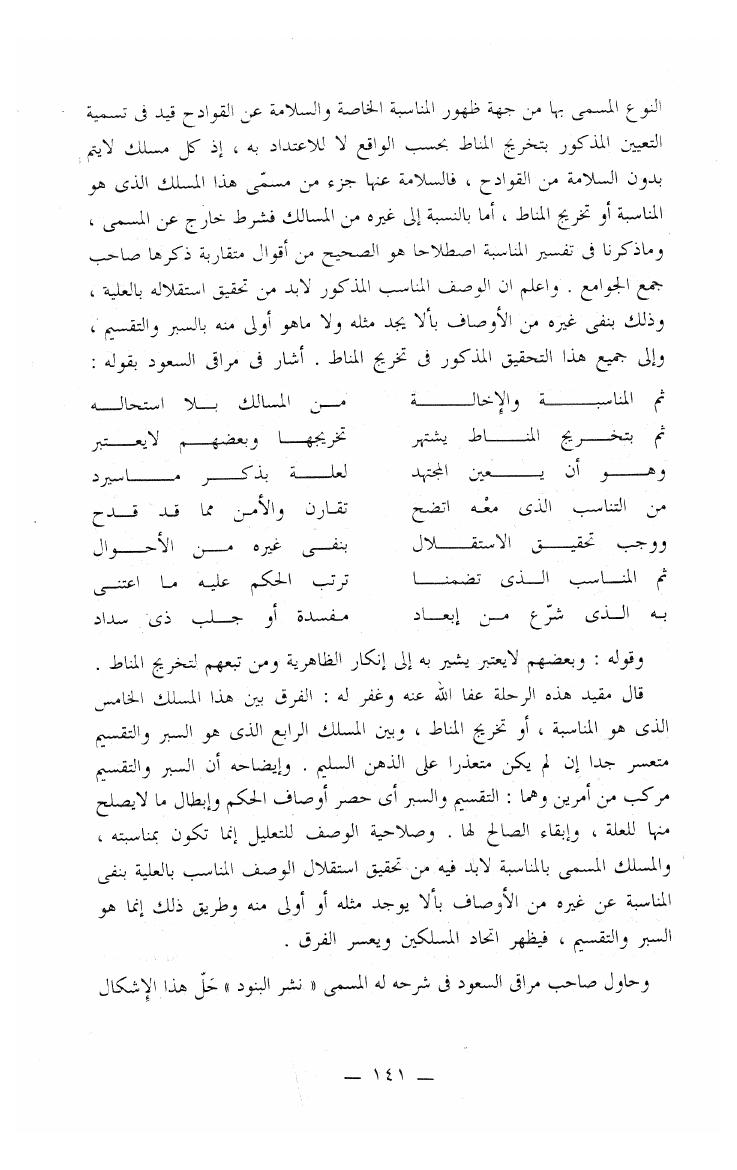 النوع المسمى بها من جهة ظهور المناسبة الخاصة والسلامة عن القوادح قيد فى تسمية
التعيين المذكور بتخريج المناط بحسب الواقع لا للاعتداد به ، إذ كل مسلك لايتم
بدون السلامة من القوادح ، فالسلامة عنها جزء من مسمّى هذا المسلك الذى هو
المناسبة أو تخريج المناط ، أما بالنسبة إلى غيره من المسالك فشرط خارج عن المسمى ،
وماذكرنا فى تفسير المناسبة اصطلاحا هو الصحيح من أقوال متقاربة ذكرها صاحب
جمع الجوامع . واعلم ان الوصف المناسب المذكور لابد من تحقيق استقلاله بالعلية ،
وذلك بنفى غيره من الأوصاف بألا يجد مثله ولا ماهو أولى منه بالسبر والتقسيم ،
وإلى جميع هذا التحقيق المذكور فى تخريج المناط . أشار فى مراقى السعود بقوله :
ثم المناسبة والإخالة من المسالك بلا استحاله
ثم بتخريج المناط يشتهر تخريجها وبعضهم لايعتبر
وهو أن يعين المجتهد لعلة بذكر ماسيرد
من التناسب الذى معْه اتضح تقارن والأمن مما قد قدح
ووجب تحقيق الاستقلال بنفى غيره من الأحوال
ثم المناسب الذى تضمنا ترتب الحكم عليه ما اعتنى
به الذى شرّع من إبعاد مفسدة أو جلب ذى سداد
وقوله : وبعضهم لايعتبر يشير به إلى إنكار الظاهرية ومن تبعهم لتخريج المناط .
قال مقيد هذه الرحلة عفا الله عنه وغفر له : الفرق بين هذا المسلك الخامس
الذى هو المناسبة ، أو تخريج المناط ، وبين المسلك الرابع الذى هو السبر والتقسيم
متعسر جدا إن لم يكن متعذرا على الذهن السليم . وإيضاحه أن السبر والتقسيم
مركب من أمرين وهما : التقسيم والسبر أى حصر أوصاف الحكم وإبطال ما لايصلح
منها للعلة ، وإبقاء الصالح لها . وصلاحية الوصف للتعليل إنما تكون بمناسبته ،
والمسلك المسمى بالمناسبة لابد فيه من تحقيق استقلال الوصف المناسب بالعلية بنفى
المناسبة عن غيره من الأوصاف بألا يوجد مثله أو أولى منه وطريق ذلك إنما هو
السبر والتقسيم ، فيظهر اتحاد المسلكين ويعسر الفرق .
وحاول صاحب مراقى السعود فى شرحه له المسمى « نشر البنود » حَلّ هذا الإشكال
— ١٤١ —